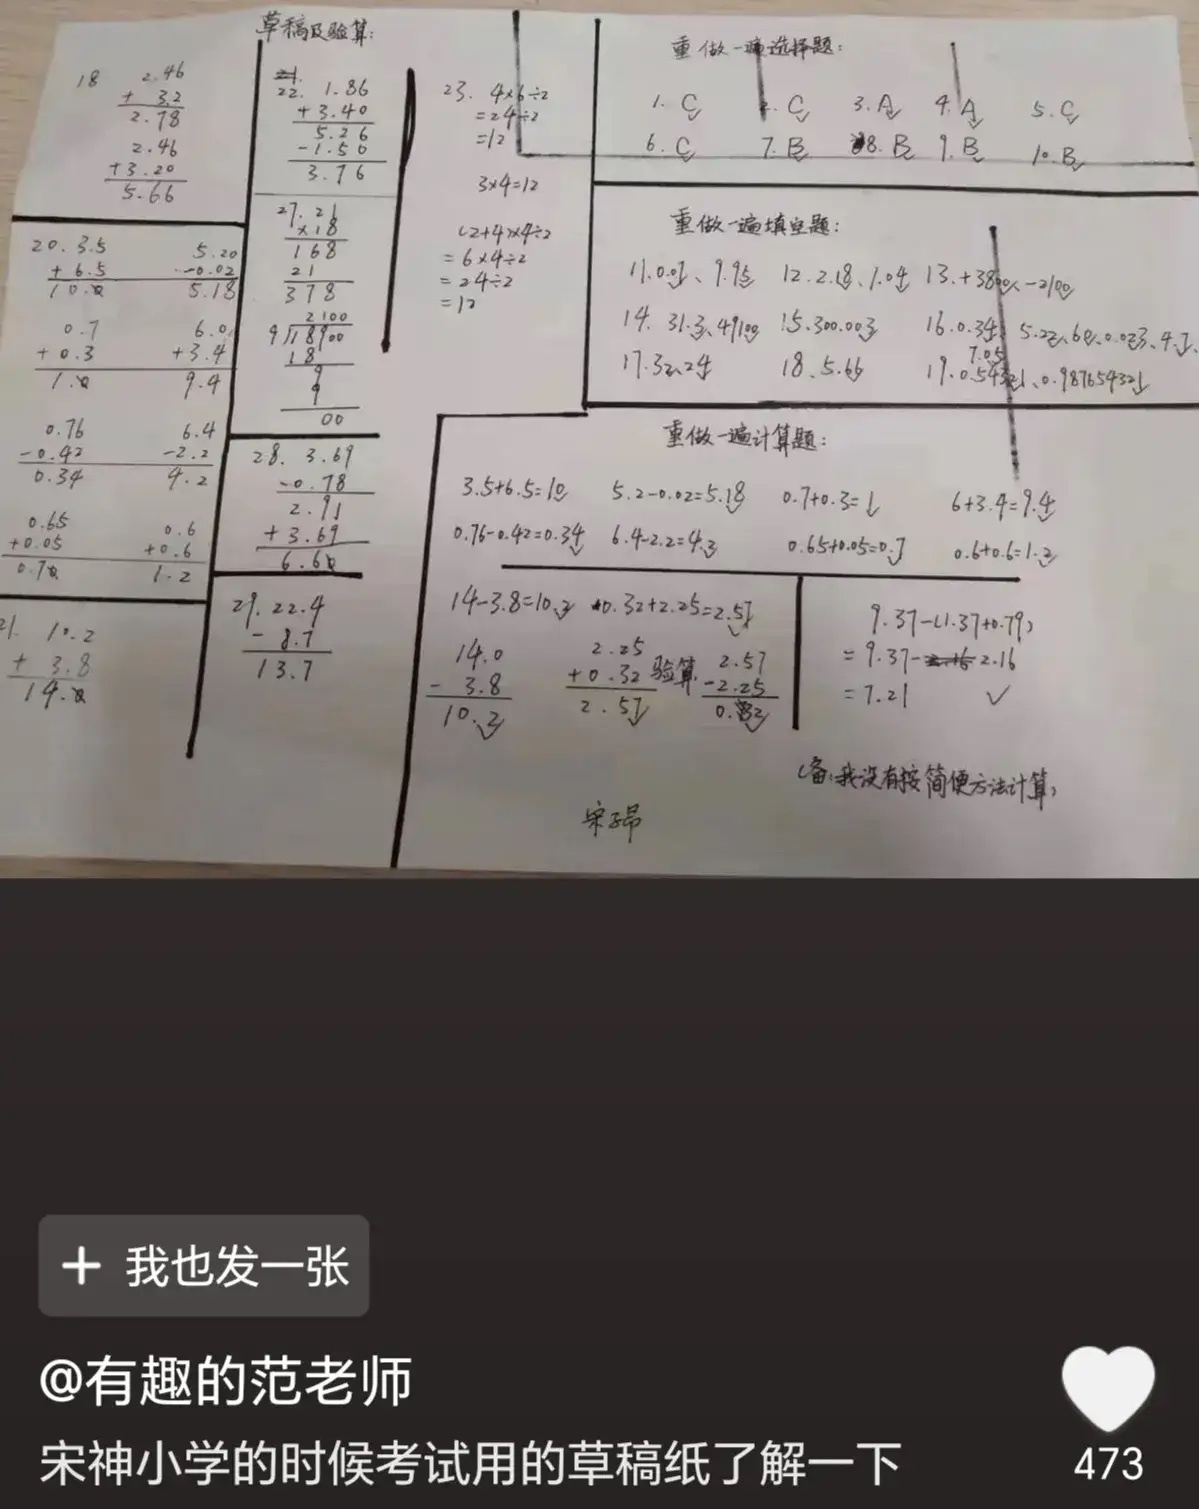 草稿及验算:
18
2.46
+ 3.2
2.78
2.46
+3.20
5.66
20. 3.5
+ 6.5
10.0
5.20
-0.02
5.18
0.7
+ 0.3
1.0
6.0
+3.4
9.4
0.76
-0.42
0.34
6.4
-2.2
4.2
0.65
+0.05
0.70
0.6
+0.6
1.2
21. 10.2
+ 3.8
14.0
22. 1.86
+3.40
5.26
-1.50
3.76
27. 21
×18
168
21
378
2100
9√18900
18
9
9
00
28. 3.69
-0.78
2.91
+ 3.69
6.60
29. 22.4
- 8.7
13.7
23. 4×6÷2
=24÷2
=12
3×4=12
(2+4)×4÷2
=6×4÷2
=24÷2
=12
重做一遍选择题:
1. C 2. C 3. A 4. A 5. C
6. C 7. B 8. B 9. B 10. B
重做一遍填空题:
11.0.01、9.95 12.2.18、1.04 13.+3800、-2100
14. 31.3、49100 15.300.003 16.0.34、5.22、6.0.023、4.7、
7.05
17.32、24 18、5.66 19.0.54321、0.987654321
重做一遍计算题:
3.5+6.5=10 5.2-0.02=5.18 0.7+0.3=1 6+3.4=9.4
0.76-0.42=0.34 6.4-2.2=4.2 0.65+0.05=0.7 0.6+0.6=1.2
14-3.8=10.2 0.32+2.25=2.57
14.0
- 3.8
10.2
2.25
+0.32
2.57
验算
2.57
-2.25
0.32
9.37-(1.37+0.79)
=9.37-2.16
=7.21 ✓
(备:我没有按简便方法计算)
宋子昂
+ 我也发一张
@有趣的范老师
宋神小学的时候考试用的草稿纸了解一下
473